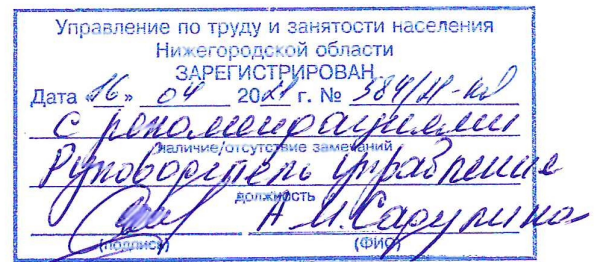 Управление по труду и занятости населения
Нижегородской области
ЗАРЕГИСТРИРОВАН
Дата «16» 04 2021 г. №
с рекомендациями
наличие/отсутствие замечаний
Руководитель управления
должность
А.М. Сарулина
(подпись) (ФИО)